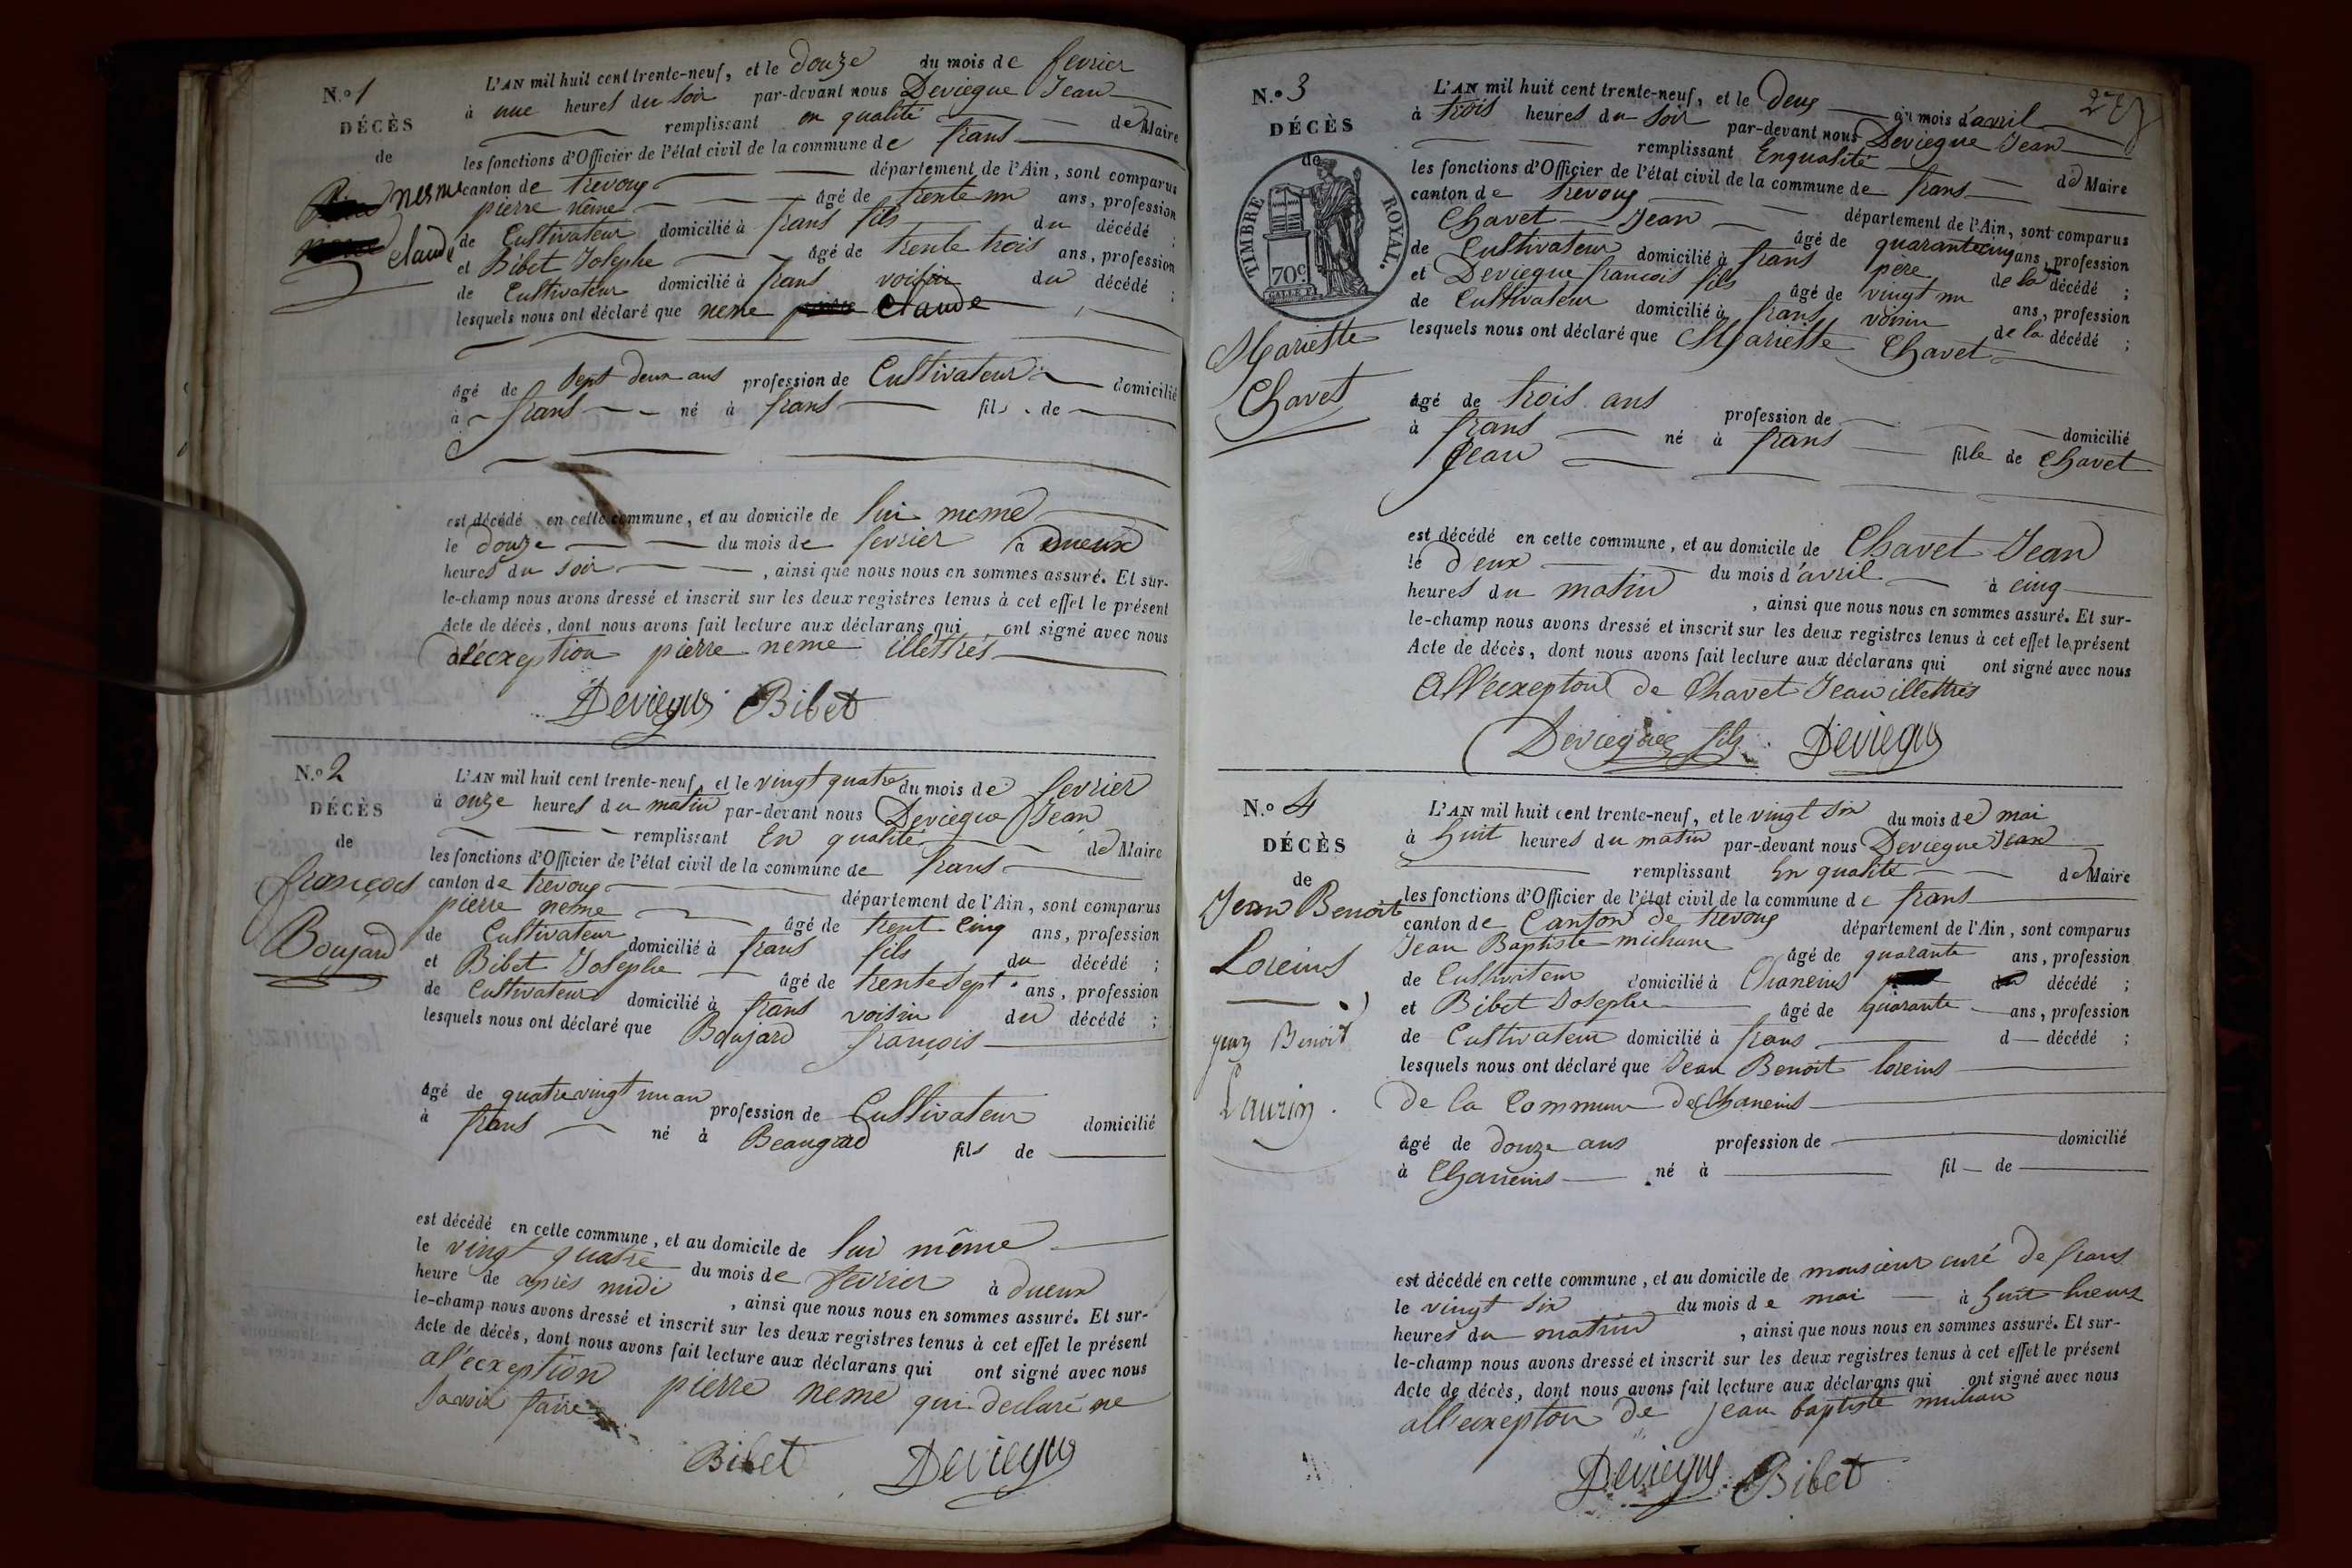 N.o 1
DÉCÈS
de
nesme
Claude
L'AN mil huit cent trente-neuf, et le douze du mois de fevrier
à une heures du soir par-devant nous Deviegue Jean
remplissant en qualité de Maire
les fonctions d'Officier de l'état civil de la commune de frans
canton de trevoux département de l'Ain, sont comparus
pierre neme âgé de trente un ans, profession
de Cultivateur domicilié à frans fils du décédé ;
et Bibet Josephe âgé de trente trois ans, profession
de Cultivateur domicilié à frans voisin du décédé ;
lesquels nous ont déclaré que neme Claude
âgé de Sept deux ans profession de Cultivateur domicilié
à frans né à frans fils de
est décédé en cette commune, et au domicile de lui meme
le douze du mois de fevrier à dueux
heures du soir , ainsi que nous nous en sommes assuré. Et sur-
le-champ nous avons dressé et inscrit sur les deux registres tenus à cet effet le présent
Acte de décès, dont nous avons fait lecture aux déclarans qui ont signé avec nous
al'écxeption pierre neme illettres
Deviegue Bibet
N.o 2
DÉCÈS
de
françois
Boujard
L'AN mil huit cent trente-neuf, et le vingt quatre du mois de fevrier
à onze heures du matin par-devant nous Deviegue Jean
remplissant En qualité de Maire
les fonctions d'Officier de l'état civil de la commune de frans
canton de trevoux département de l'Ain, sont comparus
pierre neme âgé de trent cinq ans, profession
de Cultivateur domicilié à frans fils du décédé ;
et Bibet Josephe âgé de trente Sept ans, profession
de Cultivateur domicilié à frans voisin du décédé ;
lesquels nous ont déclaré que Boujard françois
âgé de quatre vingt un an profession de Cultivateur domicilié
à frans né à fils de
est décédé en cette commune, et au domicile de lui même
le vingt quatre du mois de fevrier à dueux
heure de après midi , ainsi que nous nous en sommes assuré. Et sur-
le-champ nous avons dressé et inscrit sur les deux registres tenus à cet effet le présent
Acte de décès, dont nous avons fait lecture aux déclarans qui ont signé avec nous
al'écxeption pierre neme qui declaré ne
savoir faire
Bibet Deviegue
N.o 3
DÉCÈS
de
TIMBRE ROYAL.
70c
Mariette
Chavet
L'AN mil huit cent trente-neuf, et le deux du mois d'avril
à trois heures du soir par-devant nous Deviegue Jean
remplissant Enqualité de Maire
les fonctions d'Officier de l'état civil de la commune de frans
canton de trevoux département de l'Ain, sont comparus
Chavet Jean âgé de quarante cinq ans, profession
de Cultivateur domicilié à frans père de la décédé ;
et Deviegue francois fils âgé de vingt un ans, profession
de Cultivateur domicilié à frans voisin de la décédé ;
lesquels nous ont déclaré que Mariette Chavet
âgé de trois ans profession de domicilié
à frans né à frans fille de Chavet
Jean
est décédé en cette commune, et au domicile de Chavet Jean
le deux du mois d'avril à cinq
heures du matin , ainsi que nous nous en sommes assuré. Et sur-
le-champ nous avons dressé et inscrit sur les deux registres tenus à cet effet le présent
Acte de décès, dont nous avons fait lecture aux déclarans qui ont signé avec nous
All'ecxepton de Chavet Jean illettrés
Deviegue fils Deviegue
N.o 4
DÉCÈS
de
Jean Benoit
Loreins
Jean Benoit
Laurin
L'AN mil huit cent trente-neuf, et le vingt six du mois de mai
à huit heures du matin par-devant nous Deviegue Jean
remplissant En qualité de Maire
les fonctions d'Officier de l'état civil de la commune de frans
canton de Canton de trevoux département de l'Ain, sont comparus
Jean Baptiste âgé de quarante ans, profession
de Cultivateur domicilié à Chaneins décédé ;
et Bibet Josephe âgé de quarante ans, profession
de Cultivateur domicilié à frans d décédé ;
lesquels nous ont déclaré que Jean Benoit loreins
De la Commune De Chaneins
âgé de douze ans profession de domicilié
à Chaneins né à fil de
est décédé en cette commune, et au domicile de monsieur curé de frans
le vingt six du mois de mai à huit heures
heures du matin , ainsi que nous nous en sommes assuré. Et sur-
le-champ nous avons dressé et inscrit sur les deux registres tenus à cet effet le présent
Acte de décès, dont nous avons fait lecture aux déclarans qui ont signé avec nous
all'ecxepton de jean baptiste
Deviegue Bibet